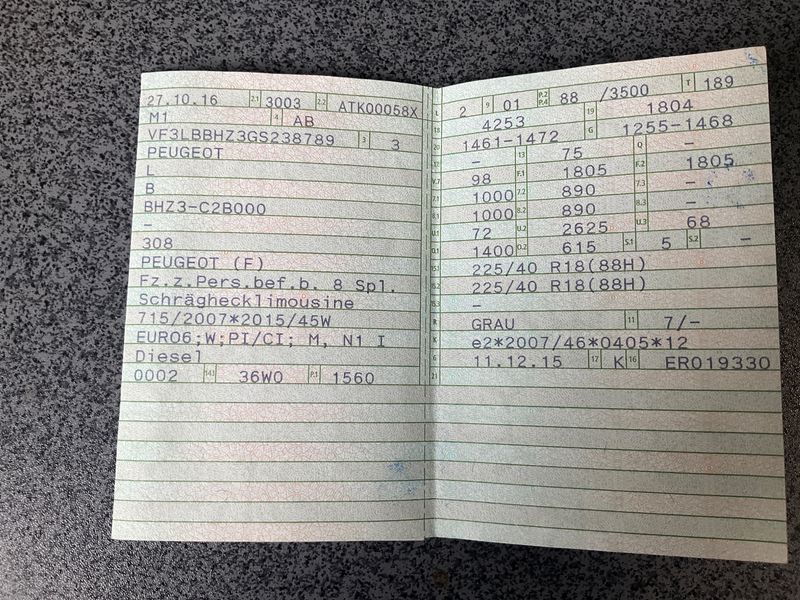 27.10.16 2.1 3003 2.2 ATK00058X
M1 4 AB
VF3LBBHZ3GS238789 3 3
PEUGEOT
L
B
BHZ3-C2B000
-
308
PEUGEOT (F)
Fz.z.Pers.bef.b. 8 Spl.
Schräghecklimousine
715/2007*2015/45W
EURO6;W;PI/CI; M, N1 I
Diesel
0002 14.1 36W0 P.1 1560
L 2 9 01 P.2 P.4 88 /3500 T 189
18 4253 19 1804
20 1461-1472 G 1255-1468
12 - 13 75 Q -
V.7 98 F.1 1805 F.2 1805
7.1 1000 7.2 890 7.3 -
8.1 1000 8.2 890 8.3 -
U.1 72 U.2 2625 U.3 68
O.1 1400 O.2 615 S.1 5 S.2 -
15.1 225/40 R18(88H)
15.2 225/40 R18(88H)
15.3 -
R GRAU 11 7/-
K e2*2007/46*0405*12
6 11.12.15 17 K 16 ER019330
21